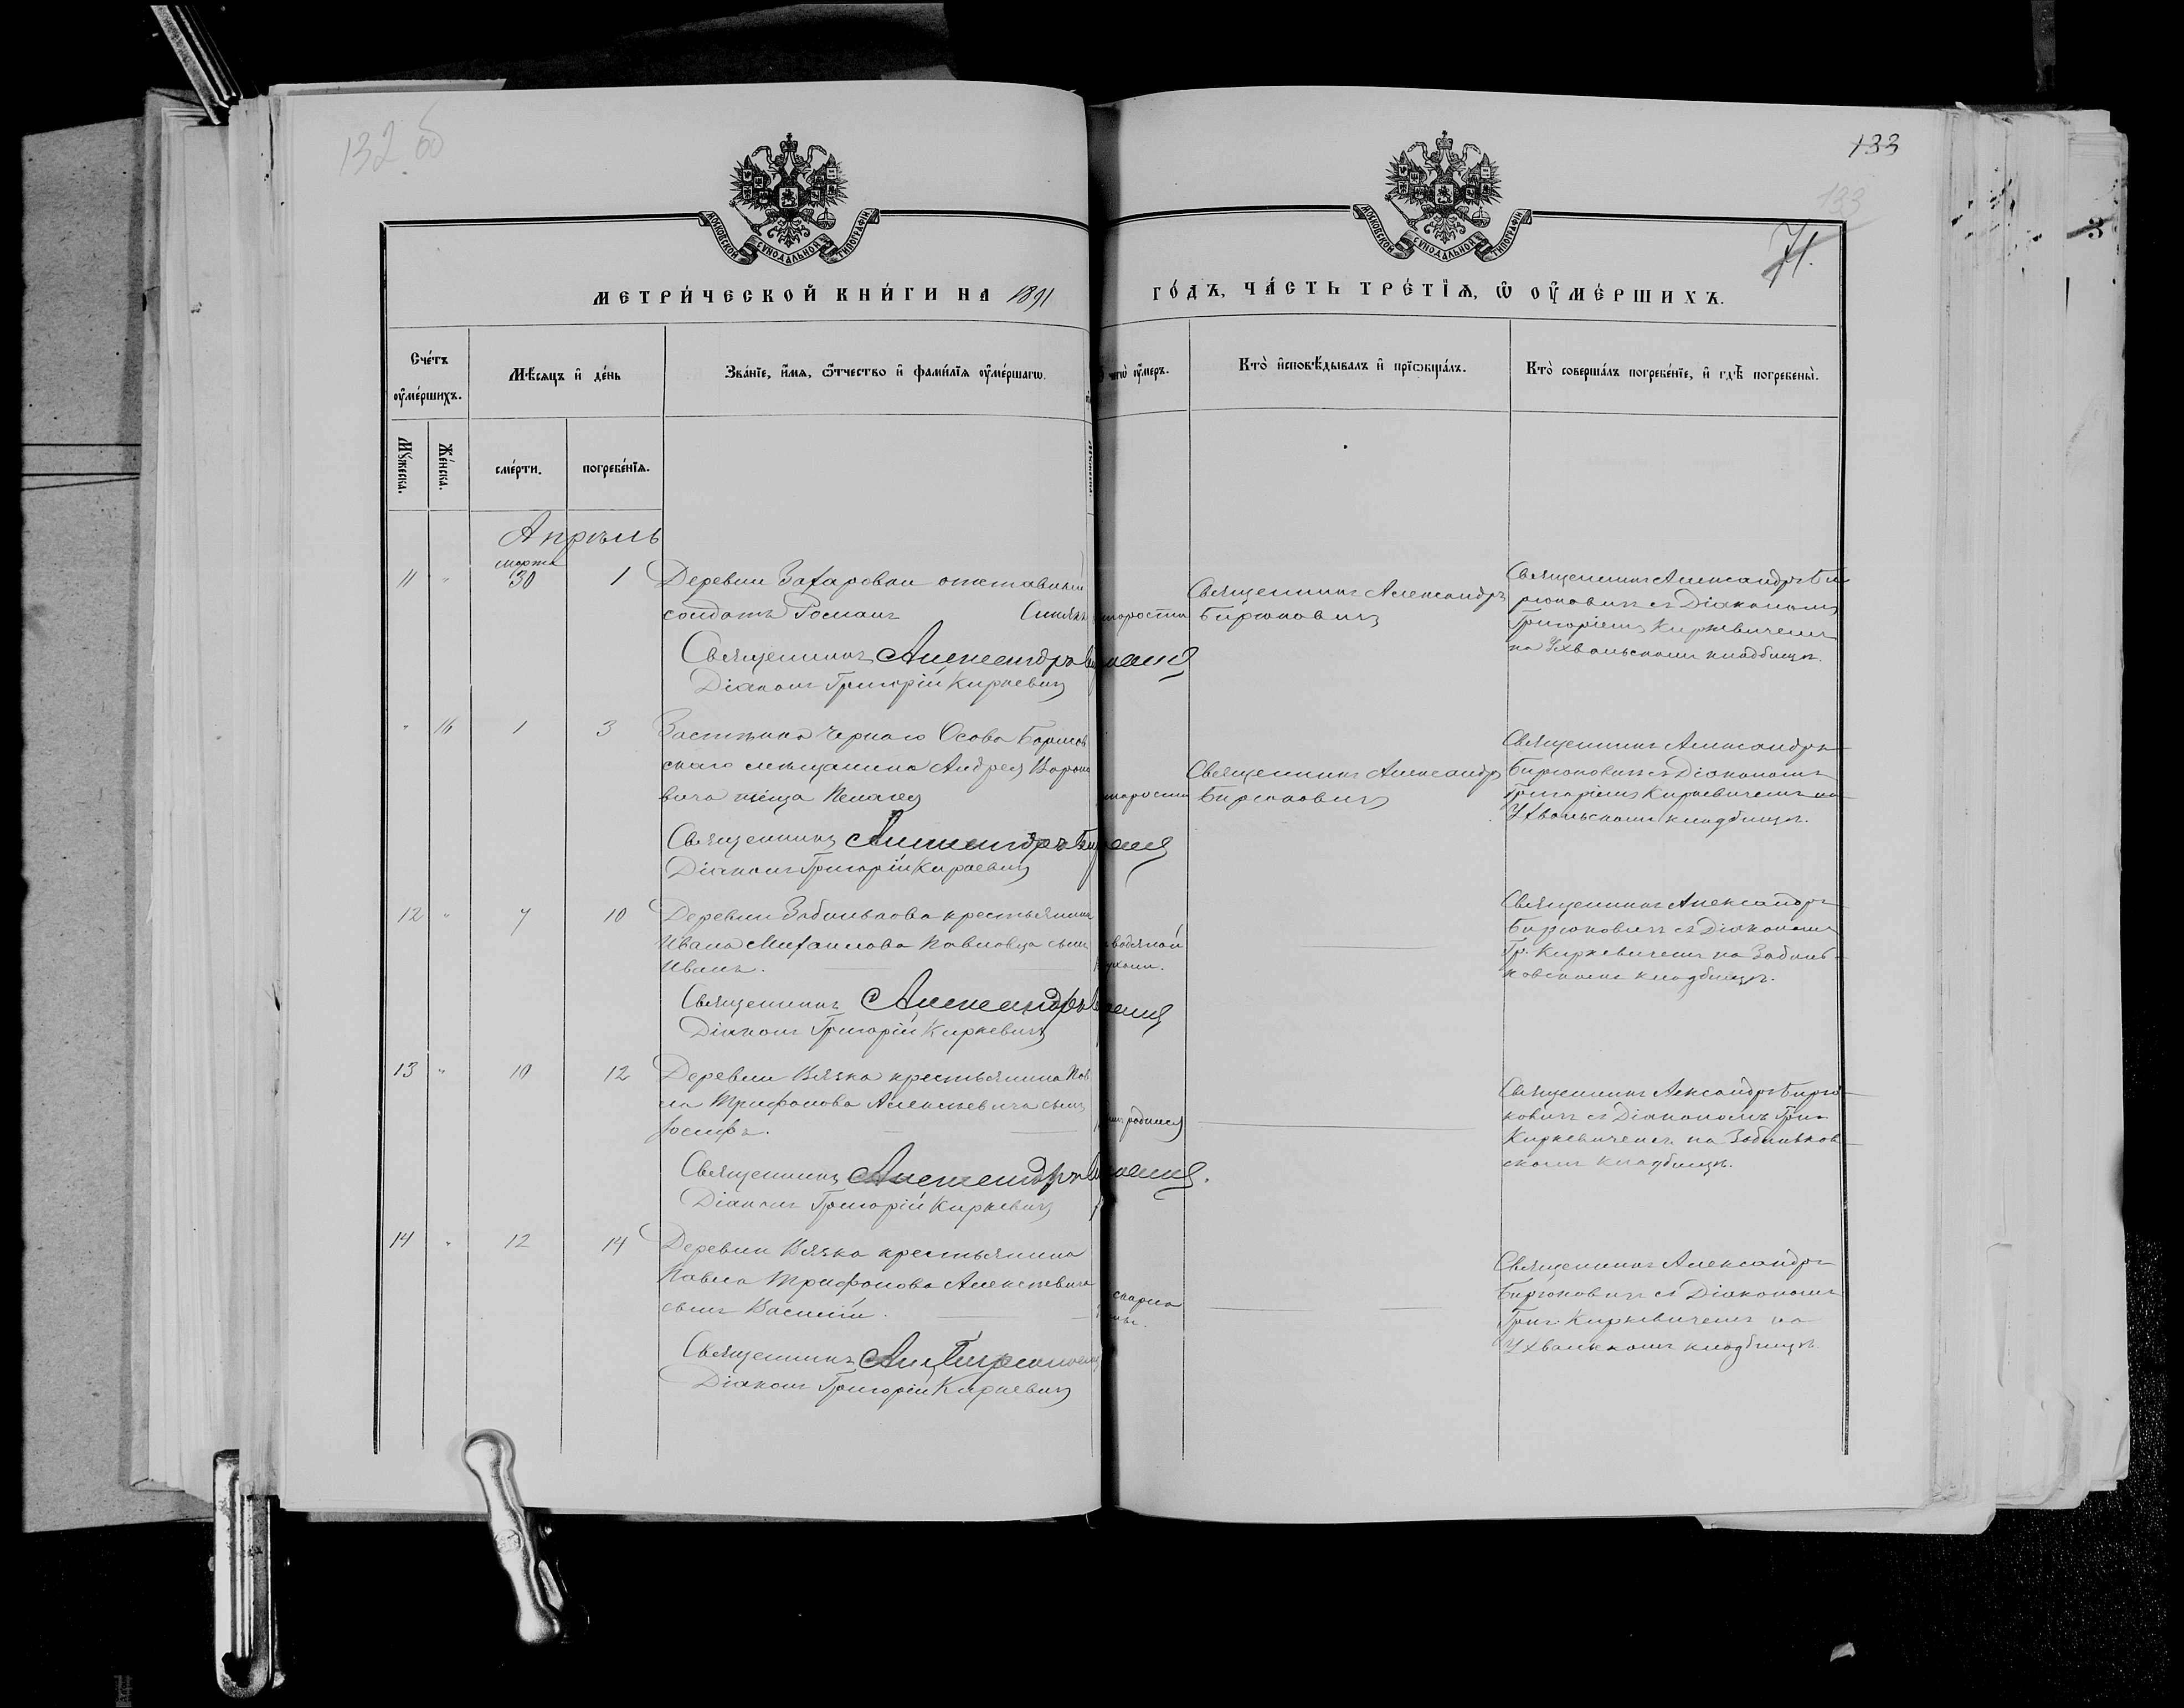 132 об
133
133
71.
МОСКОВСКОЙ СУНОДАЛЬНОЙ ТИПОГРАФІИ
МОСКОВСКОЙ СУНОДАЛЬНОЙ ТИПОГРАФІИ
МЕТРИ́ЧЕСКОЙ КНИ́ГИ НА 1891
ГО́ДЪ, ЧА́СТЬ ТРЕ́ТІѦ, Ѡ ОУ҆МЕ́РШИХЪ.
Сче́тъ оу҆ме́ршихъ.
Мѣ́сяцъ и҆ де́нь
Зва́нїе, и҆́мѧ, ѻ҆́тчество и҆ фами́лїѧ оу҆ме́ршагѡ.
чегѡ̀ оу҆́меръ.
Кто̀ и҆сповѣ́дывалъ и҆ прїѡбща́лъ.
Кто̀ соверша́лъ погребе́нїе, и҆ гдѣ̀ погребены̀.
Му́жеска.
Же́нска.
сме́рти.
погребе́нїѧ.
Апрѣль
марта
11 " 30 1
Деревни Захаровки отставный
солдатъ Романъ
Священникъ Александръ
Діаконъ Григорій Киркевичъ
старости
Священникъ Александръ
Бирюковичъ
Священникъ Александръ Би
рюковичъ съ Діакономъ
Григоріемъ Киркевичемъ
на Ухвальскомъ кладбищѣ.
" 16 1 3
Застѣнка Чернаго Осова Борисов
скаго мѣщанина Андрея Ворон
вича Пелагея
Священникъ Александръ
Діаконъ Григорій Киркевичъ
старости
Священникъ Александръ
Бирюковичъ
Священникъ Александръ
Бирюковичъ съ Діакономъ
Григоріемъ Киркевичемъ на
Ухвальскомъ кладбищѣ.
12 " 7 10
Деревни крестьянина
Ивана Михаилова Павловца сынъ
Иванъ.
Священникъ Александръ
Діаконъ Григорій Киркевичъ
водяной
Священникъ Александръ
Бирюковичъ съ Діакономъ
Гр. Киркевичемъ на
кладбищѣ.
13 " 10 12
Деревни Вязка крестьянина Пав
ла Трифонова Алексѣевича сынъ
Іосифъ.
Священникъ Александръ
Діаконъ Григорій Киркевичъ
родился
Священникъ Александръ Бирю-
ковичъ съ Діакономъ Григ
Киркевичемъ на
скомъ кладбищѣ.
14 " 12 14
Деревни Вязка крестьянина
Павла Трифонова Алексѣевича
сынъ Василій.
Священникъ Ал. Бирюковичъ
Діаконъ Григорій Киркевичъ
Священникъ Александръ
Бирюковичъ съ Діакономъ
Григ. Киркевичемъ на
Ухвальскомъ кладбищѣ.